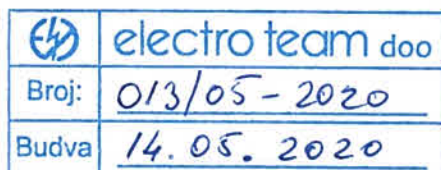 electro team doo
Broj: 013/05-2020
Budva 14. 05. 2020